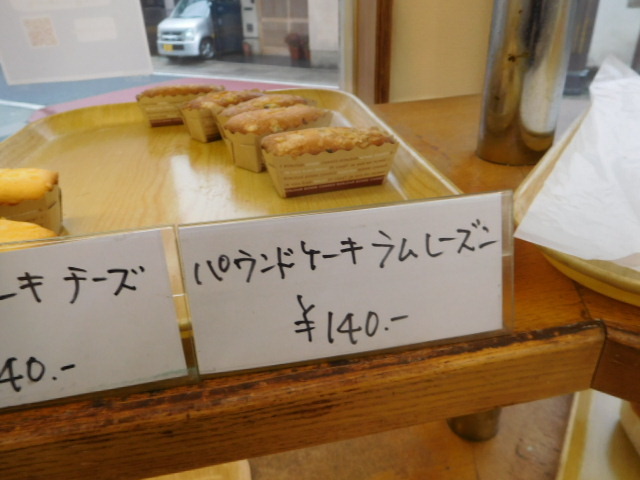 ーキ チーズ
40.-
パウンドケーキ ラムレーズン
¥140.-